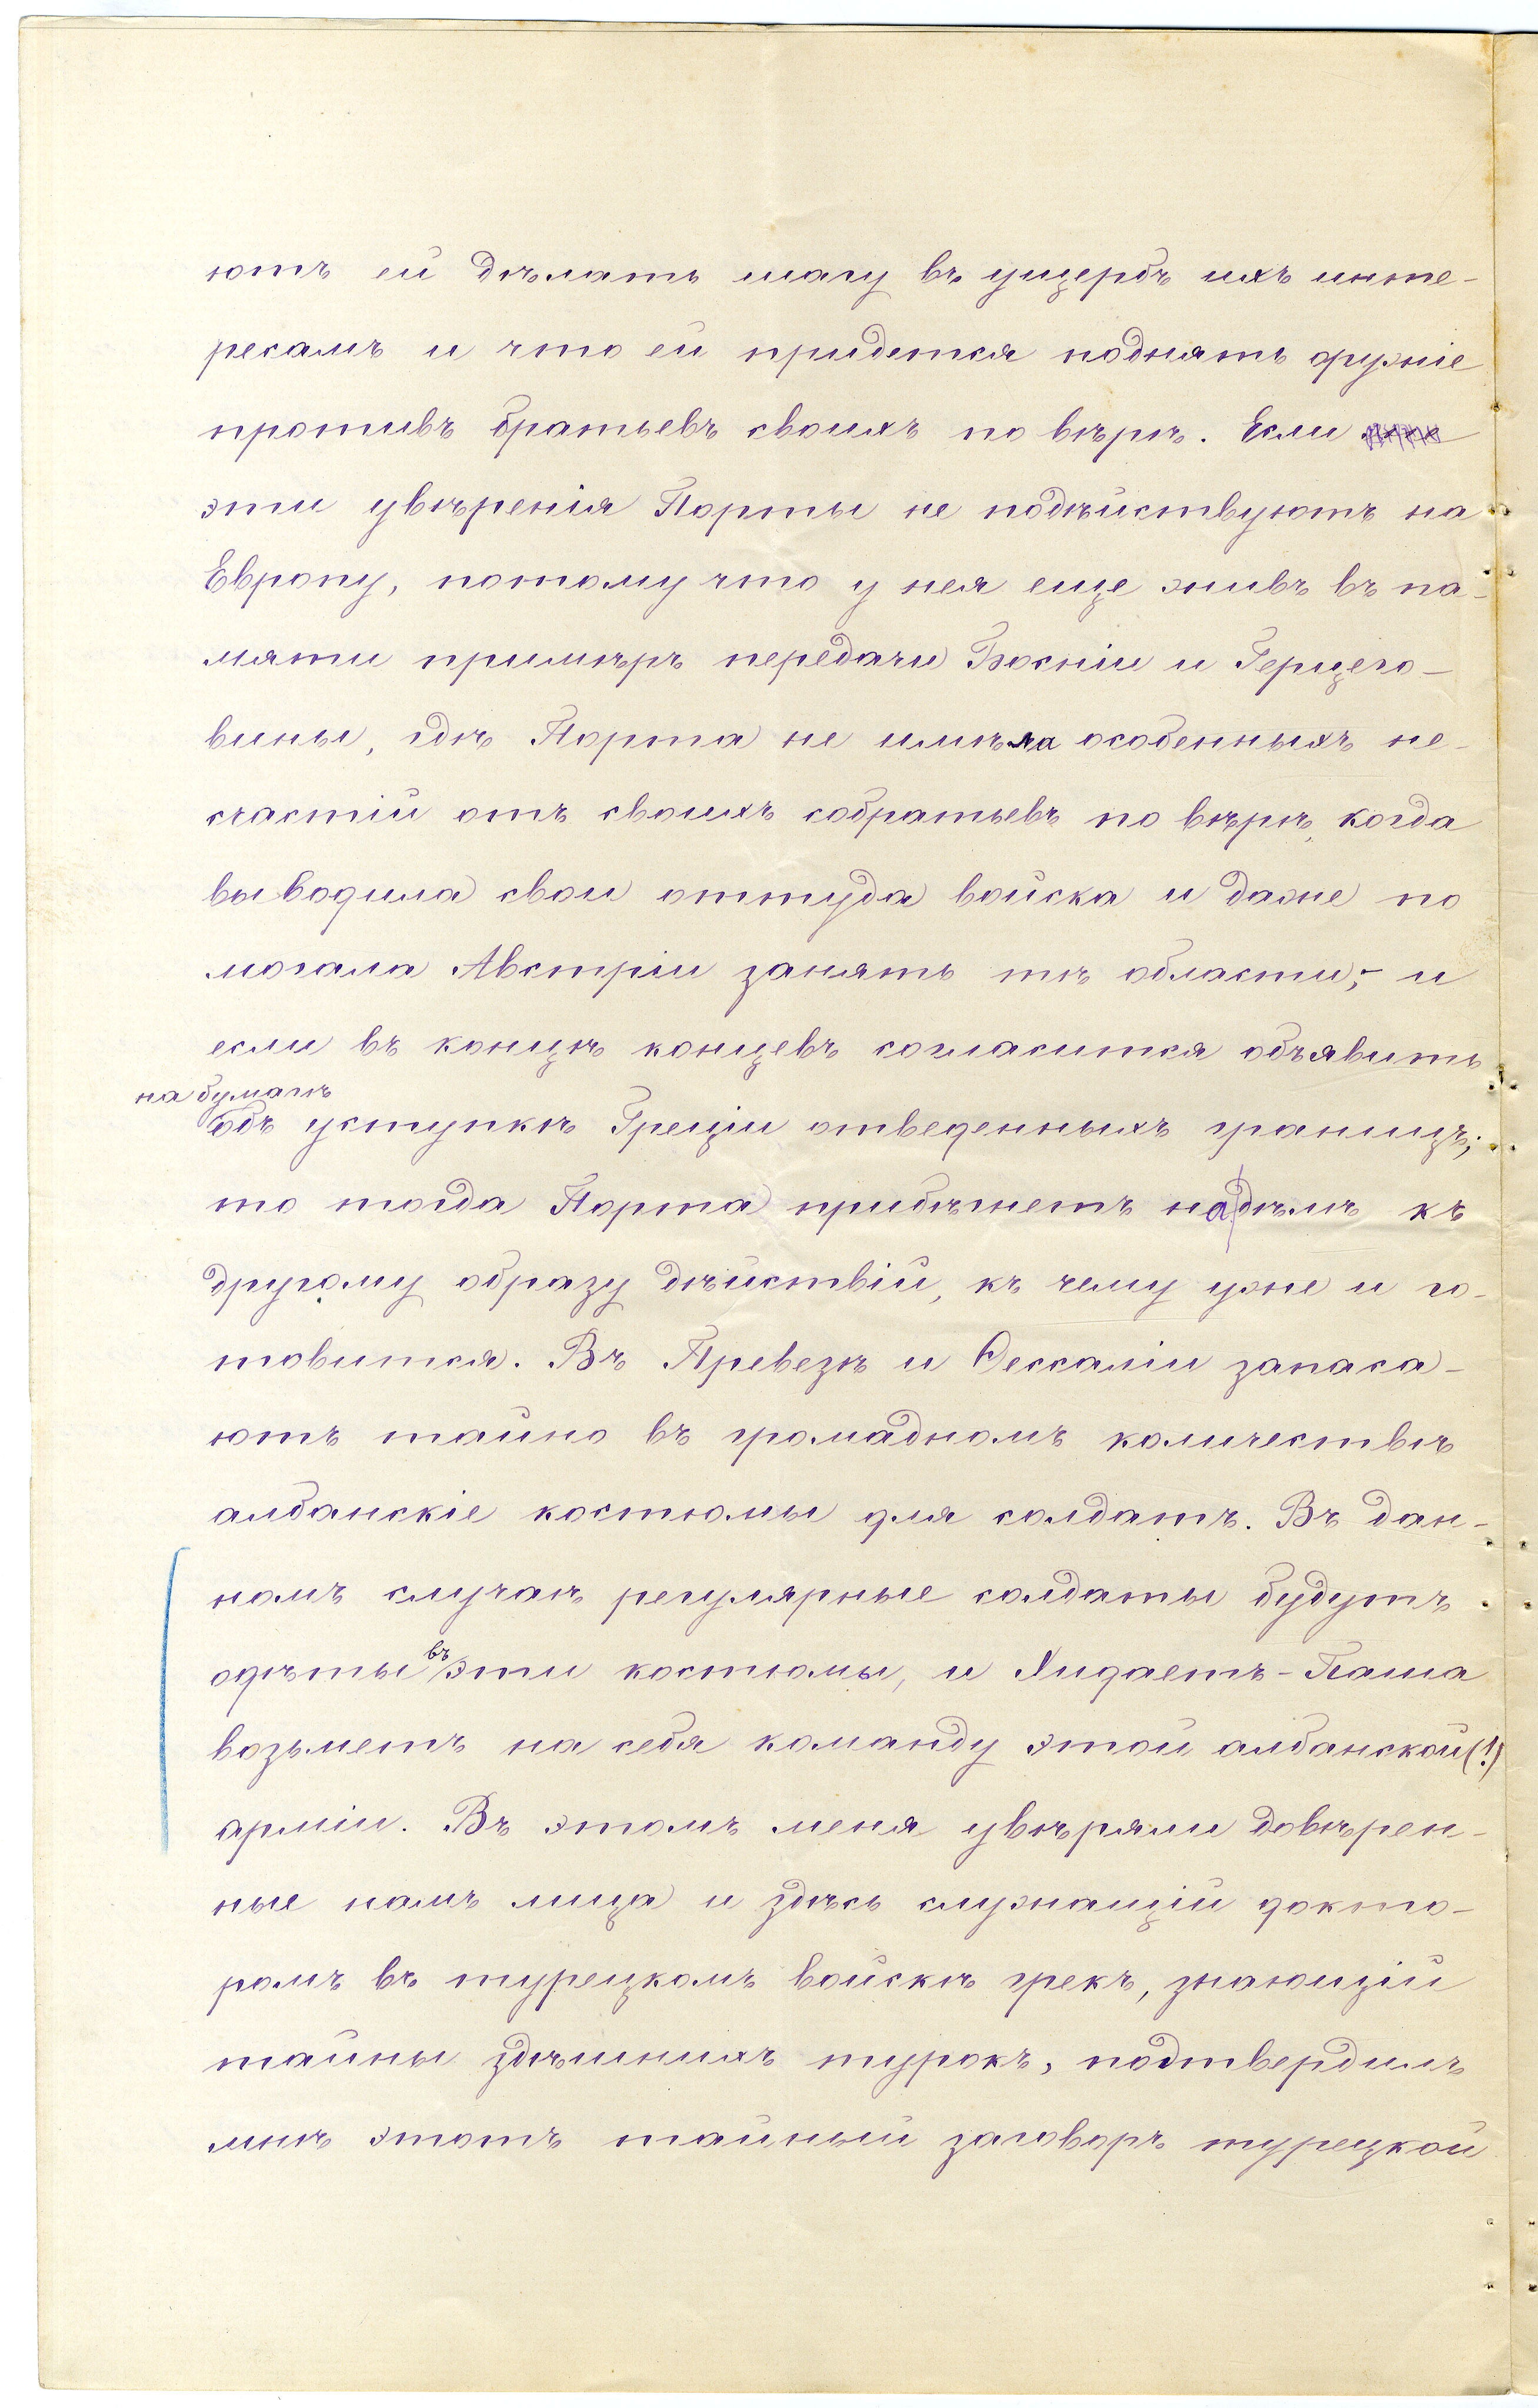 ютъ ей дѣлать шагу въ ущербъ ихъ инте-
ресамъ и что ей придется поднять оружіе
противъ братьевъ своихъ по вѣрѣ. Если
эти увѣренія Порты не подѣйствуютъ на
Европу, потому что у нея еще живъ въ па-
мяти примѣръ передачи Босніи и Герцего-
вины, гдѣ Порта не имѣла особенныхъ не-
счастій отъ своихъ собратьевъ по вѣрѣ, когда
выводила свои оттуда войска и даже по
могала Австріи занять тѣ области; - и
если въ концѣ концевъ согласится объявить
на бумагѣ
объ уступкѣ Греціи отведенныхъ границъ;
то тогда Порта прибѣгнетъ на дѣлѣ къ
другому образу дѣйствій, къ чему уже и го-
товится. Въ Превезѣ и Ѳессаліи запаса-
ютъ тайно въ громадномъ количествѣ
албанскіе костюмы для солдатъ. Въ дан-
номъ случаѣ регулярные солдаты будутъ
въ
одѣты эти костюмы, и Хидаетъ-Паша
возьметъ на себя команду этой албанской (!)
арміи. Въ этомъ меня увѣряли довѣрен-
ные намъ лица и здѣсь служащій докто-
ромъ въ турецкомъ войскѣ грекъ, знающій
тайны здѣшнихъ турокъ, подтвердилъ
мнѣ этотъ тайный заговоръ турецкой